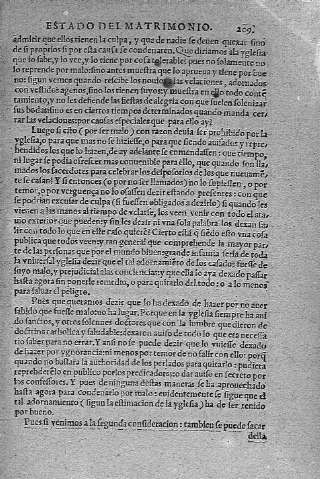 ESTADO DEL MATRIMONIO. 209
admitir que ellos tienen la culpa, y que de nadie se deuen quexar sino
de si proprios si por esta causa se condenaren. Que diriamos a la yglesia
que lo sabe, y lo vee, y lo tiene por cosa tolerable: pues no solamente no
lo reprende por malo: sino antes muestra que lo aprueua y tiene por bue
no: sigun vemos quando rescibe los nouios a las velaciones, adornados
con vestidos agenos, sino los tienen suyos: y muestra en ello todo conte
tamiento, y no les defiende las fiestas de alegria con que suelen solenizar
sus bodas: sino es en cierto tiempos determinados quando manda cer,
rar las velaciones: por causas especiales que para ello ay?
Luego si esto (por ser malo) con razon deuia ser prohibido por la
yglesia, o para que mas no se hiziesse, o para que siendo auisados y repre
hendidos los que lo hazen, de ay adelante se enmendassen: que tiempo,
ni lugar se podia ofrescer mas conueniente para ello, que quando son lla,
mados los sacerdotes para celebrar los desposorios de los que nueuame,
te se casan? Y si entonces (o por no ser llamados) no lo supiessen, o por
temor, o por verguença no lo osassen dezir estando presentes: con que
se podrian excusar de culpa (si fuessen obligados a dezirlo) si quando les
vienen a las manos al tiempo de velarse, los veen venir con todo el ata,
uio exterior que pueden: y sin les dezir ni vna sola palabra los dexan sa
lir con todo lo que en este caso quieré? Cierto está que siedo esto vna cosa
publica que todos veen: y tan general que comprehende la mayor par,
te de las personas que por el mundo biuen: grande infamia seria de toda
la vniuersal yglesia dezir que el tal adornamiéto de los casados fuesse de
suyo malo, y prejudicial a las conciencias: y que ella lo aya dexado passar
hasta agora sin ponerle remedio, o para quitarlo del todo: o a lo menos
para saluar el peligro.
Pues que queramos dezir que lo ha dexado de hazer por no auer
sabido que fuesse malo: no ha lugar. Porque en la yglesia siempre ha aui
do sanctos, y otros solennes doctores: que con la lumbre que dieron de
doctrina catholica y saludable: dexaron auiso de todo lo que era necessa
rio saber para no errar. Y ansi no se puede dezir que lo vuiesse dexado
de hazer por ygnorancia: ni menos por temor de no salir con ello: porq
quando no bastara la authoridad de los perlados para quitarlo: pudiera
reprehéderlo en publico por los predicadores: o dar auiso en secreto por
los confessores. Y pues de ninguna destas maneras se ha aprouechado
hasta agora para condenarlo por malo: euidentemente se sigue que el
tal adornamiento (sigun la estimacion de la yglesia) ha de ser tenido
por bueno.
Pues si venimos a la segunda consideracion: tambien se puede sacar
della